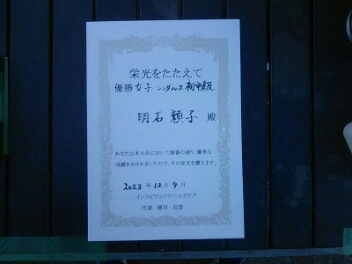 栄光をたたえて
優勝 女子 シングルス 初中級
明石 頼子 殿
あなたは本大会において頭書の通り、優秀な
成績をおさめましたので、その栄光を讃えます。
2023 年 12 月 9 日
インスピリッツテニスクラブ
代表